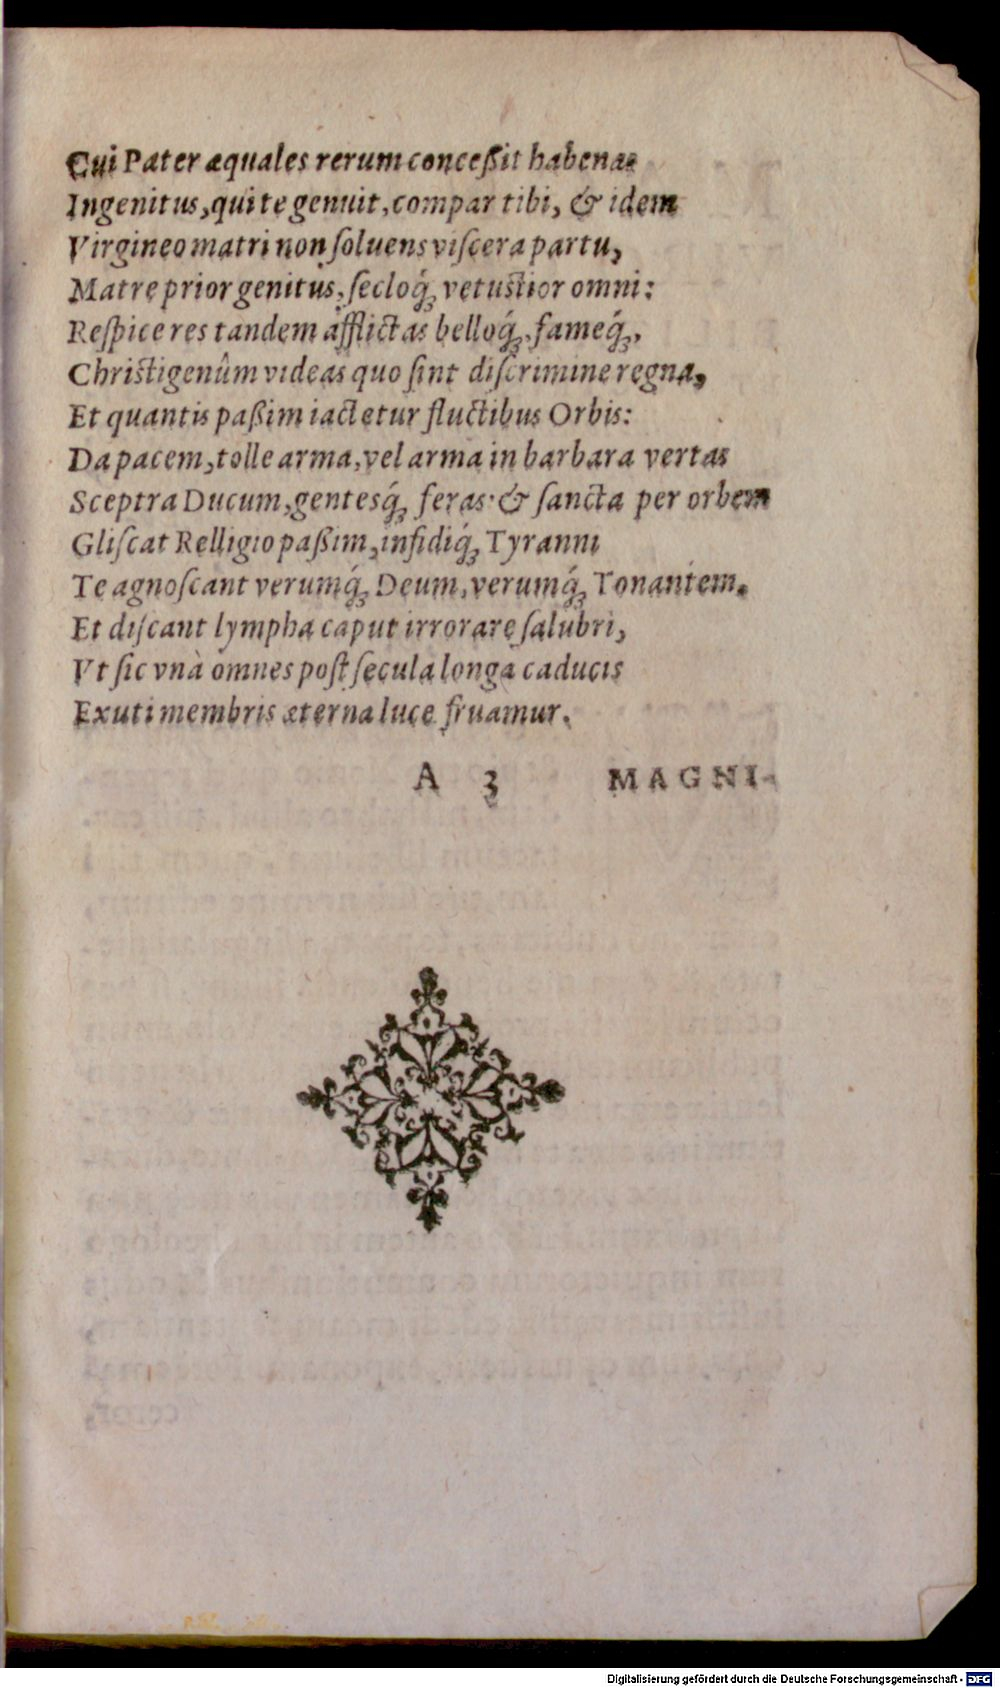 Cui Pater æquales rerum conceßit habenas
Ingenitus, qui te genuit, compar tibi, & idem
Virgineo matri non ſoluens viſcera partu,
Matre prior genitus, ſecloq́ꝫ vetuſtior omni:
Reſpice res tandem afflictas belloq́ꝫ, fameq́ꝫ,
Chriſtigenûm videas quo ſint diſcrimine regna,
Et quantis paßim iactetur fluctibus Orbis:
Da pacem, tolle arma, vel arma in barbara vertas
Sceptra Ducum, gentesq́ꝫ feras· & ſancta per orbem
Gliſcat Relligio paßim, infidiq́ꝫ Tyranni
Te agnoſcant verumq́ꝫ Deum, verumq́ꝫ Tonantem.
Et diſcant lympha caput irrorare ſalubri,
Vt ſic vnà omnes poſt ſecula longa caducis
Exuti membris æterna luce fruamur.
A 3 MAGNI-
Digitalisierung gefördert durch die Deutsche Forschungsgemeinschaft - DFG